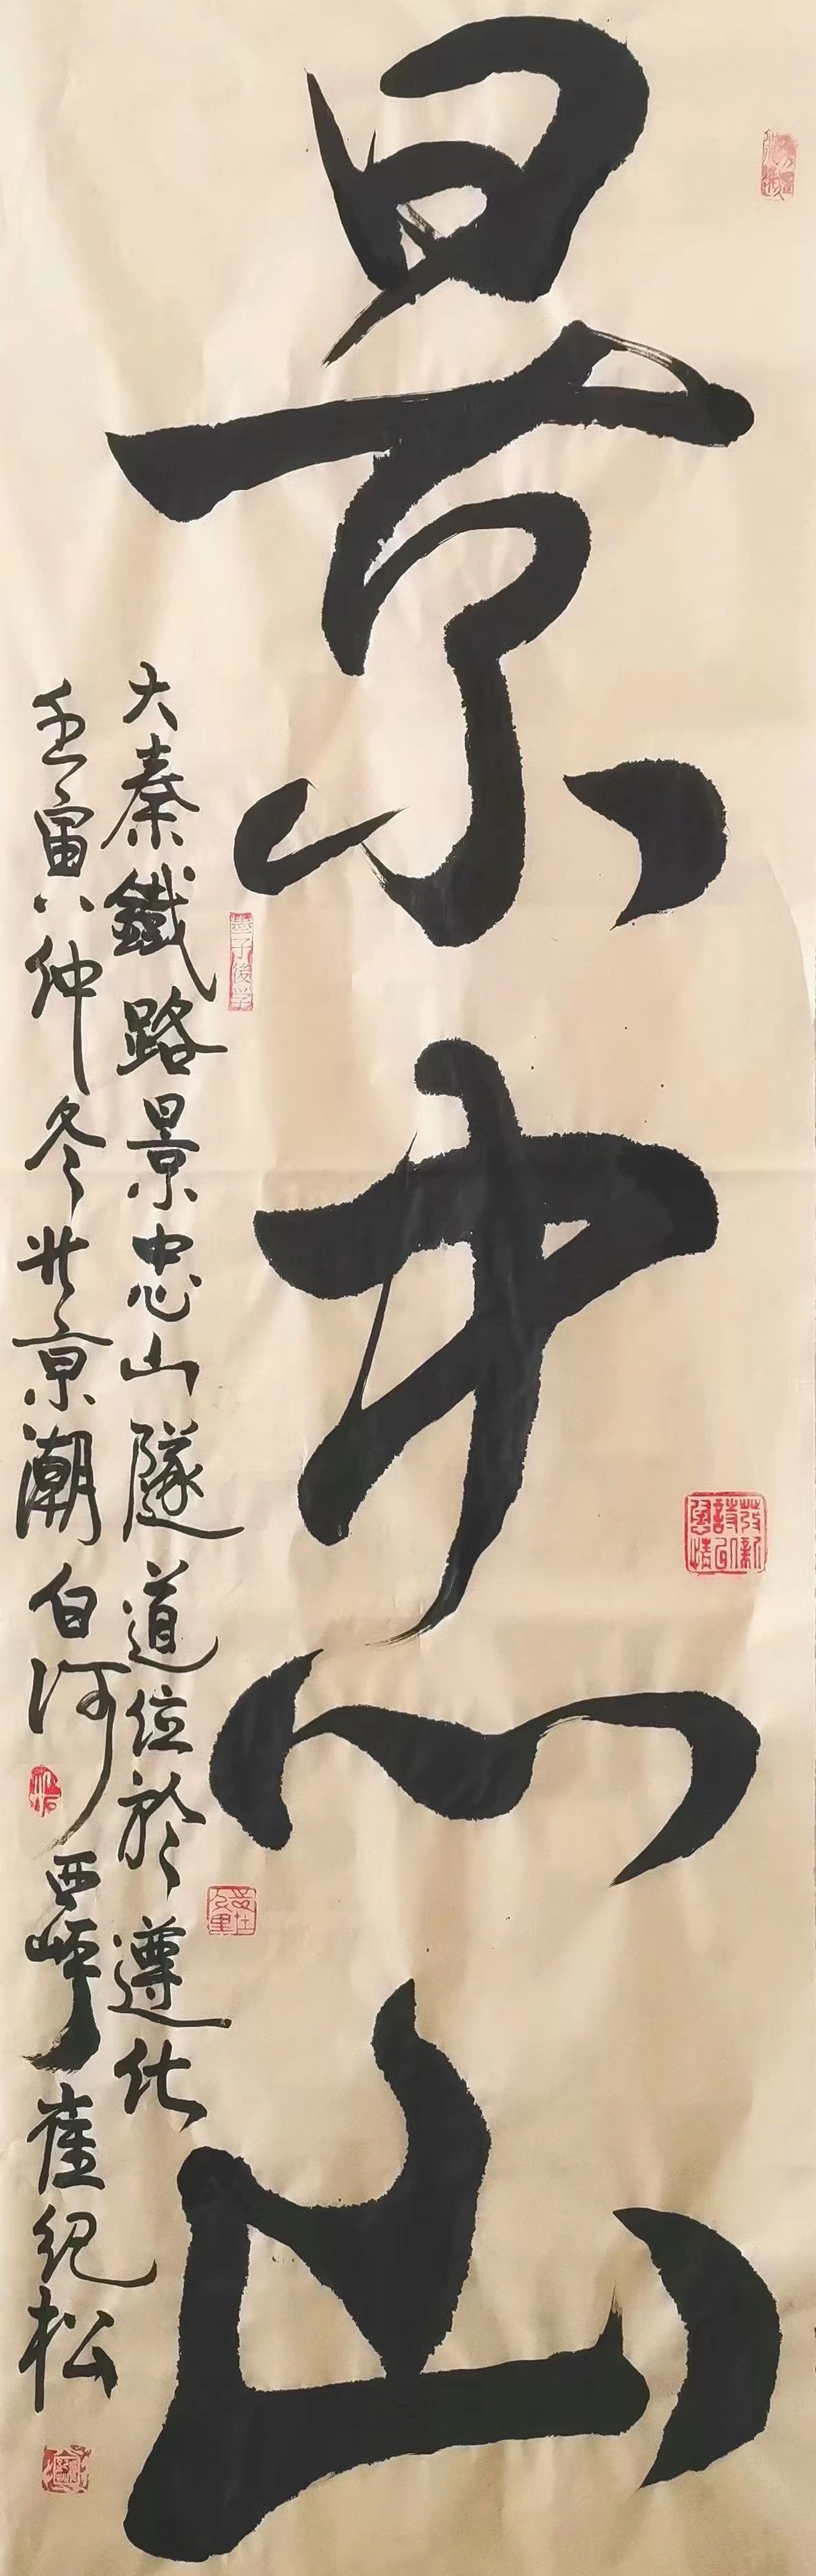 景忠山
大秦鐵路景忠山隧道位於遵化
壬寅八仲冬北京潮白河西岸崔纪松